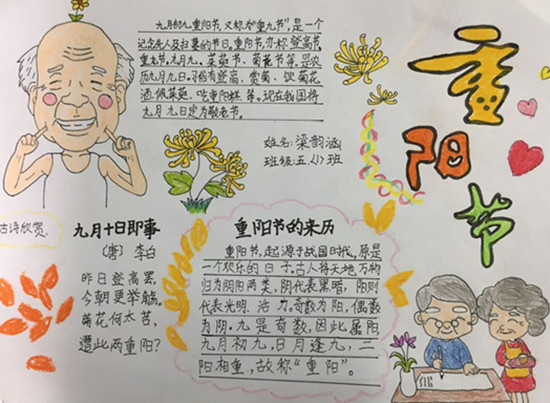 九月初九,重阳节,又称为"重九节",是一个
记念先人及扫墓的节日,重阳节,亦称登高节、
重九节、九月九、茱萸节、菊花节等,是农
历九月九日,习俗有登高、赏菊、饮菊花
酒、佩茱萸、吃重阳糕等。现在我国将
九月九日定为敬老节。
姓名:梁韵涵
班级:五、(1)班
重阳节
古诗欣赏
九月十日即事
(唐) 李白
昨日登高罢,
今朝更举觞。
菊花何太苦,
遭此两重阳?
重阳节的来历
重阳节,起源于战国时代,原是
一个欢乐的日子。古人将天地万物
归为阴阳两类,阴代表黑暗,阳则
代表光明、活力。奇数为阳,偶数
为阴。九是奇数,因此属阳
九月初九,日月逢九,二
阳相重,故称"重阳"。